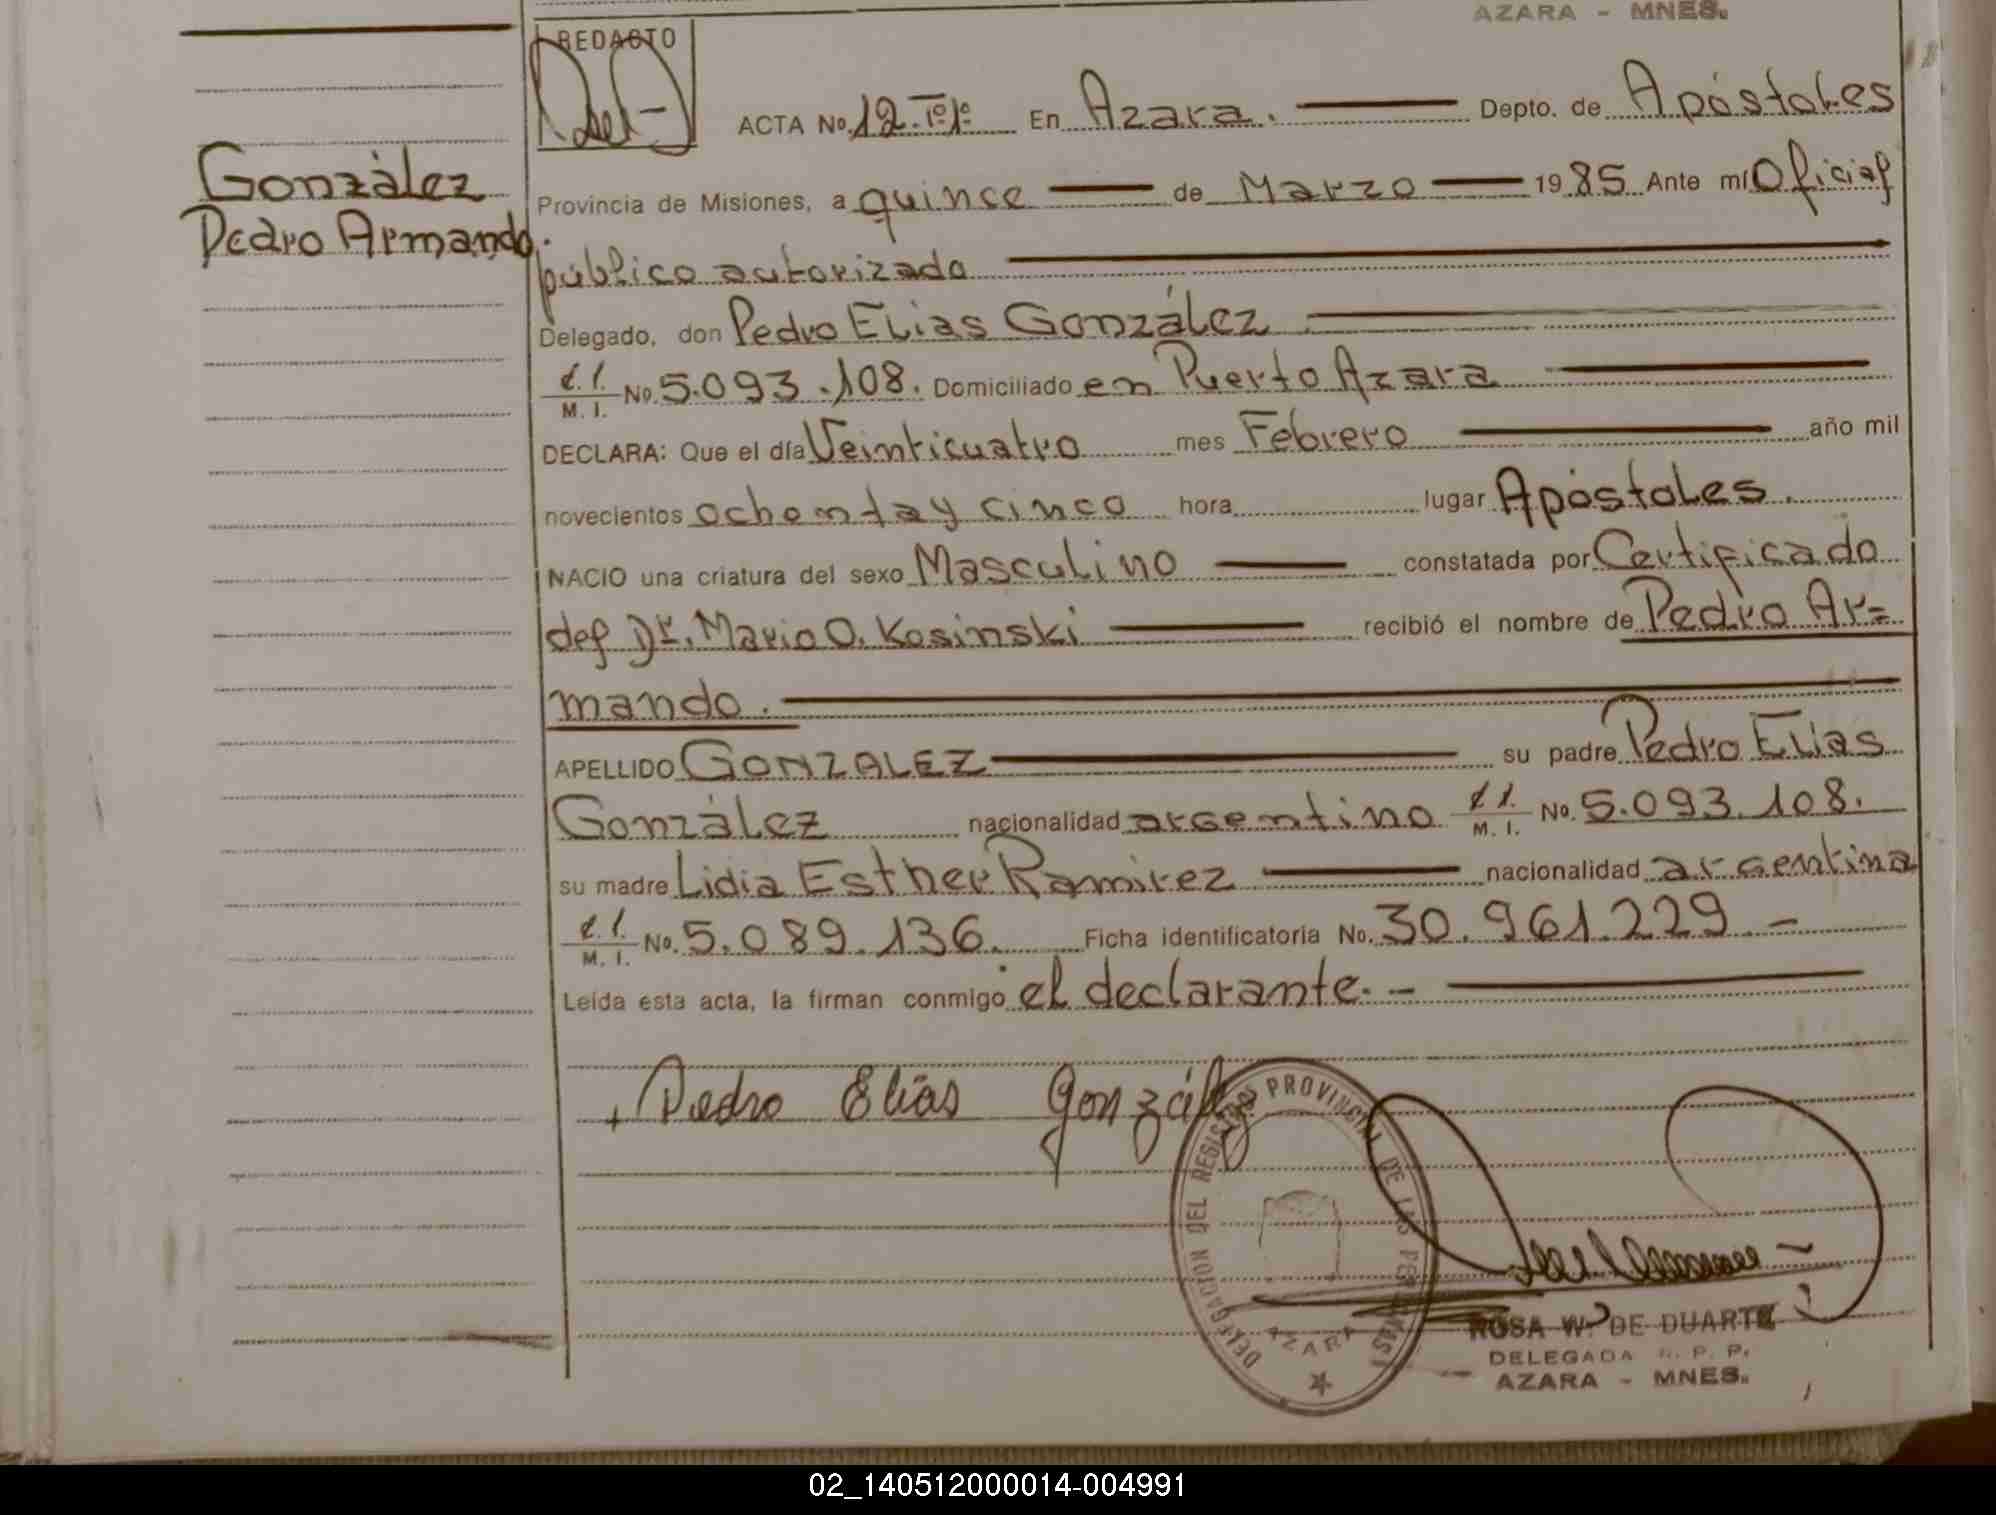 AZARA - MNES.
REDACTO
ACTA No. 12 To 1o En Azara. Depto. de Apóstoles
González
Pedro Armando.
Provincia de Misiones, a quince de Marzo 1985 Ante mí Oficial
público autorizado
Delegado, don Pedro Elias González
C.I.
M. I. No. 5.093.108. Domiciliado en Puerto Azara
DECLARA: Que el día Veinticuatro mes Febrero año mil
novecientos ochenta y cinco hora lugar Apóstoles.
NACIO una criatura del sexo Masculino constatada por Certificado
del Dr. Mario O. Kosinski recibió el nombre de Pedro Ar=
mando.
APELLIDO GONZALEZ su padre Pedro Elias
González nacionalidad argentino C.I. M. I. No. 5.093.108.
su madre Lidia Esther Ramirez nacionalidad argentina
C.I. M. I. No. 5.089.136. Ficha identificatoria No. 30.961.229 -
Leída esta acta, la firman conmigo el declarante. -
Pedro Elías González
DELEGACION DEL REGISTRO PROVINCIAL DE LAS PERSONAS
AZARA
ROSA W. DE DUARTE
DELEGADA R. P. P.
AZARA - MNES.
02_140512000014-004991